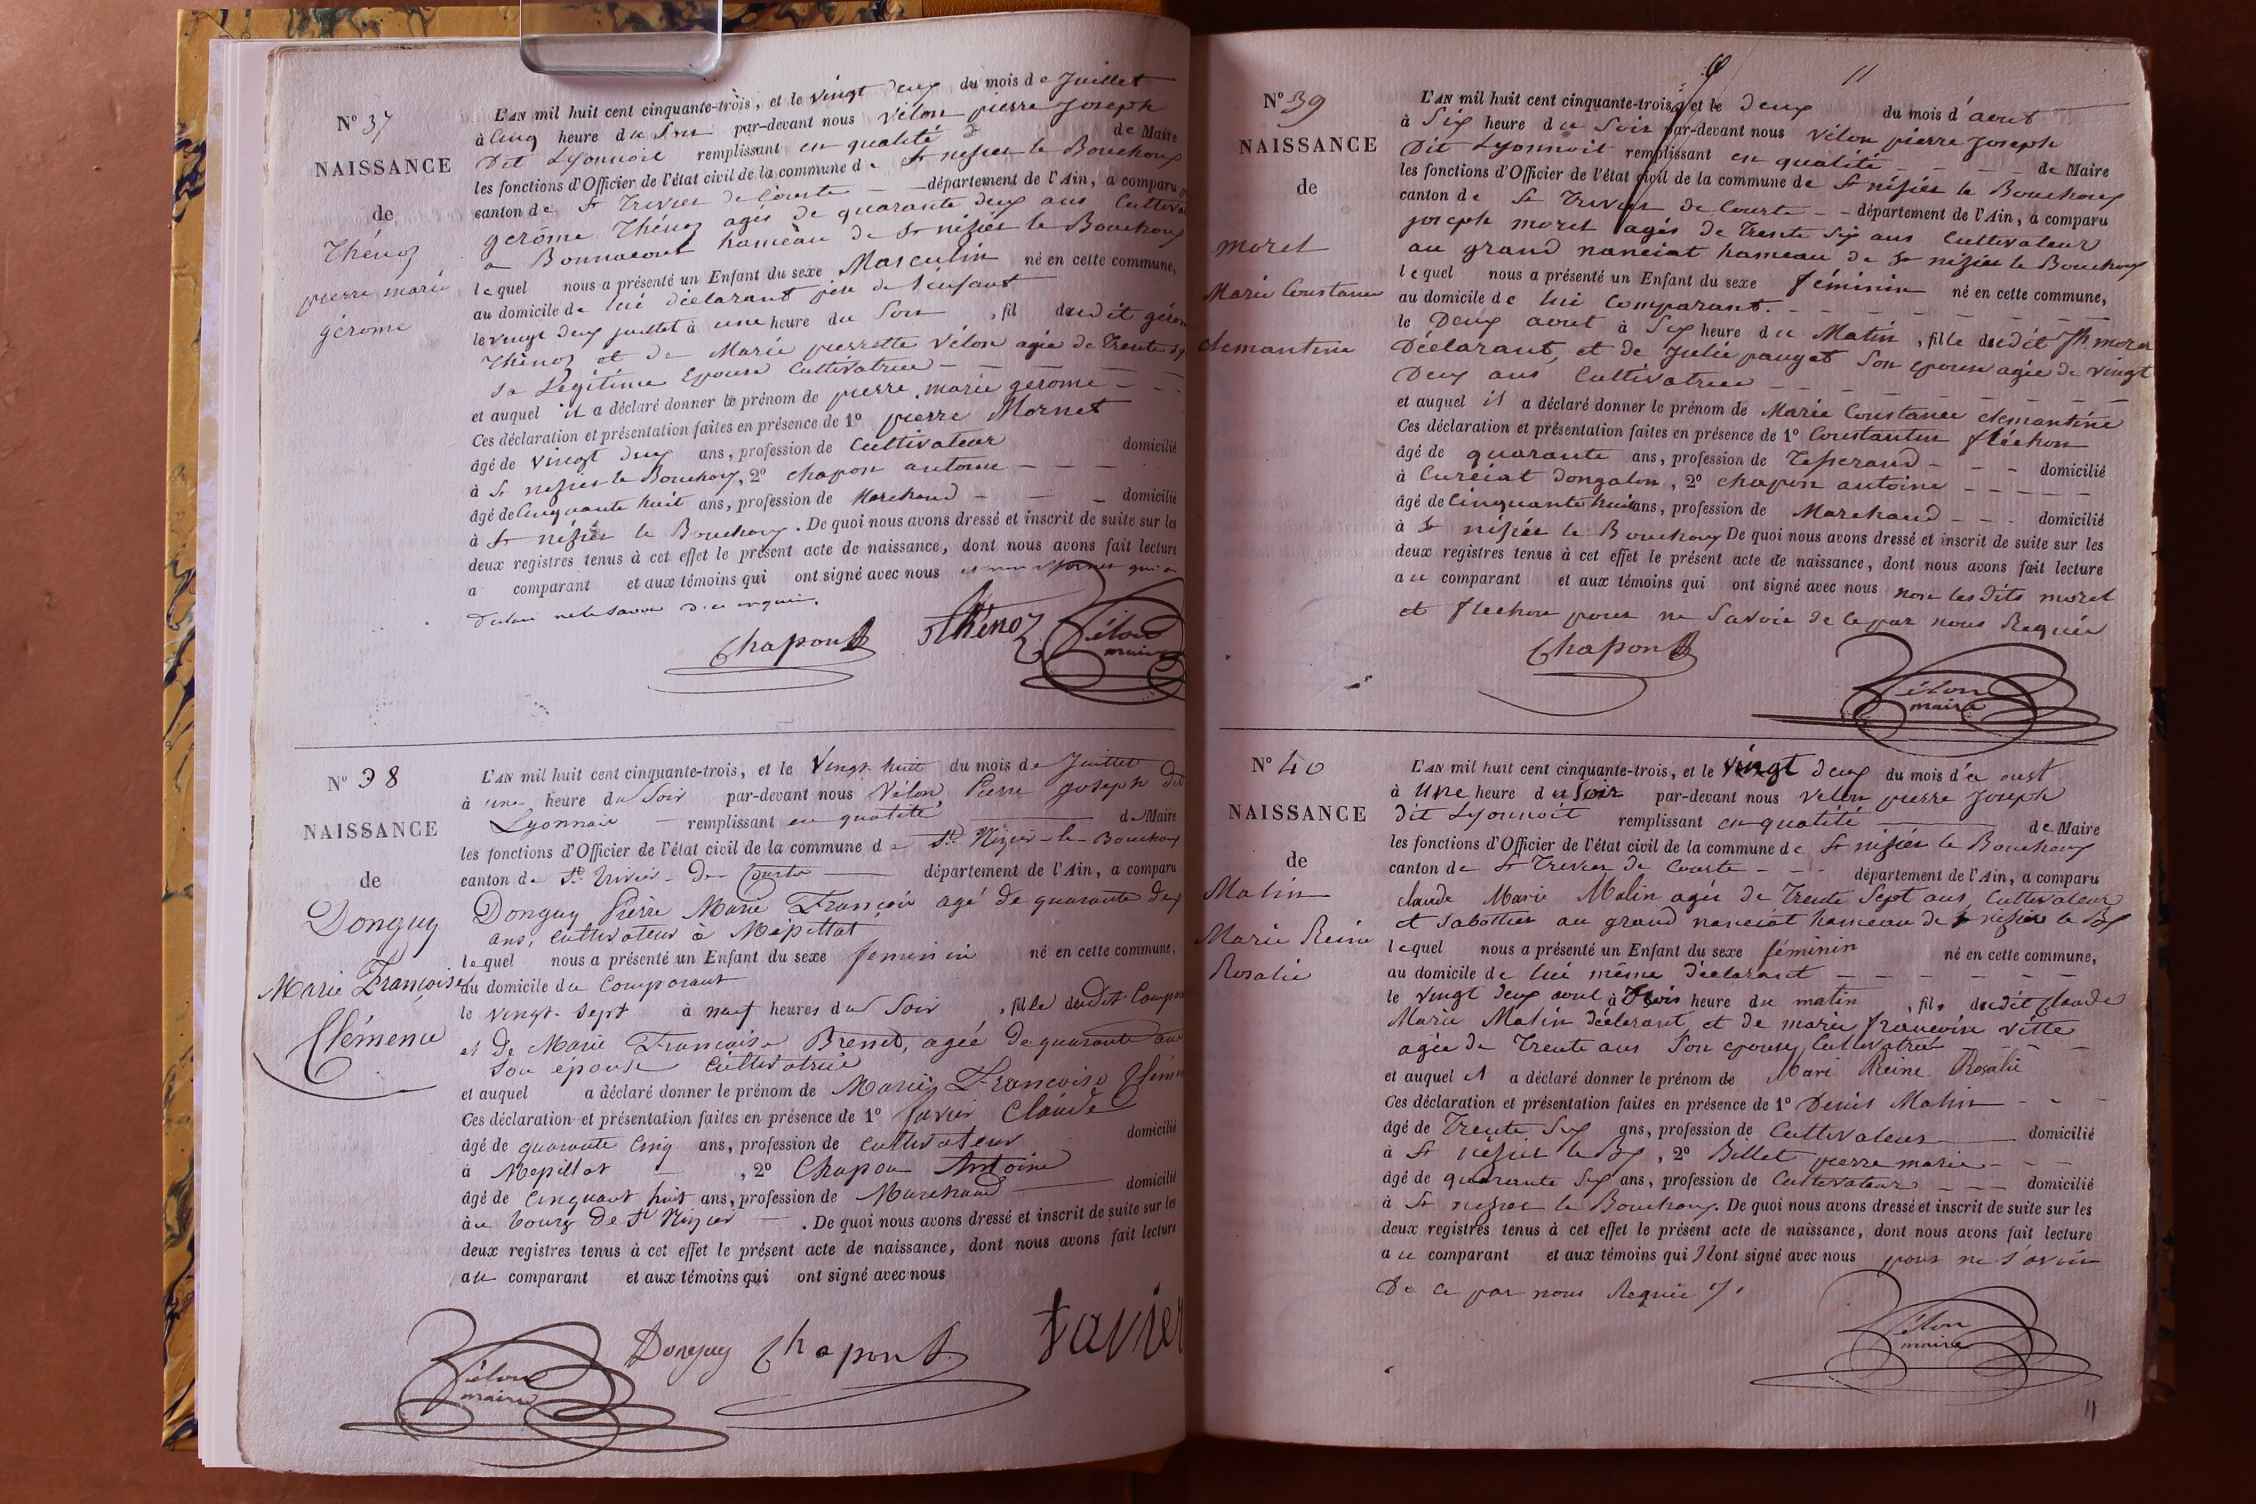 N° 37
NAISSANCE
de
Thénoz
pierre marie
gérome
L'AN mil huit cent cinquante-trois, et le vingt deux du mois de Juillet
à cinq heure du Soir par-devant nous Vélon pierre Joseph
Dit Lyonnoit remplissant en qualité de Maire
les fonctions d'Officier de l'état civil de la commune de St nizier le Bouchoux
canton de St Trivier de Courte — département de l'Ain, a comparu
gerôme Thénoz agés de quarante deux ans
a hameau de St nizier le Bouchoux
lequel nous a présenté un Enfant du sexe Masculin né en cette commune,
au domicile de lui déclarant père de l'enfant
le vingt deux juillet à une heure du Soir, fil dudit
Thénoz et de Marie pierrette Vélon agée de Trente
Sa Légitime Epouse Cultivatrice
et auquel il a déclaré donner le prénom de pierre marie gerome
Ces déclaration et présentation faites en présence de 1° pierre Mornet
âgé de vingt deux ans, profession de Cultivateur domicilié
à St nizier le Bouchoux, 2° chapon antoine
âgé de Cinquante huit ans, profession de Marchand domicilié
à St nizier le Bouchoux. De quoi nous avons dressé et inscrit de suite sur les
deux registres tenus à cet effet le présent acte de naissance, dont nous avons fait lecture
a comparant et aux témoins qui ont signé avec nous et non Mornet qui a
de ce enquis.
Chapon A Thénoz Vélon
maire
N° 38
NAISSANCE
de
Donguy
Marie Françoise
Clémence
L'AN mil huit cent cinquante-trois, et le Vingt huit du mois de Juillet
à une heure du Soir par-devant nous Vélon Pierre Joseph dit
Lyonnais — remplissant en qualité — de Maire
les fonctions d'Officier de l'état civil de la commune de St Nizier-le-Bouchoux
canton de St Trivier-de-Courte — département de l'Ain, a comparu
Donguy Pierre Marie François agé de quarante deux
ans, cultivateur à Mépillat
lequel nous a présenté un Enfant du sexe feminin né en cette commune,
au domicile du Comparant
le vingt-sept à neuf heures du Soir, fille dudit
et De Marie Françoise Brenet, agée de quarante ans
Son épouse Cultivatrice
et auquel a déclaré donner le prénom de Marie Françoise
Ces déclaration et présentation faites en présence de 1° favier Claude
âgé de quarante cinq ans, profession de cultivateur domicilié
à Mepillat —, 2° Chapon Antoine
âgé de Cinquant huit ans, profession de Marchand — domicilié
au bourg de St Nizier —. De quoi nous avons dressé et inscrit de suite sur les
deux registres tenus à cet effet le présent acte de naissance, dont nous avons fait lecture
au comparant et aux témoins qui ont signé avec nous
Vélon
maire
Donguy Chapon A. favier
11
N° 39
NAISSANCE
de
moret
Marie Constance
clemantine
L'AN mil huit cent cinquante-trois, et le deux du mois d'aout
à Six heure du Soir par-devant nous Vélon pierre Joseph
Dit Lyonnoit remplissant en qualité de Maire
les fonctions d'Officier de l'état civil de la commune de St nizier le Bouchoux
canton de St Trivier de Courte — département de l'Ain, a comparu
joseph moret agés de Trente Six ans Cultivateur
au grand nanciat hameau de St nizier le Bouchoux
lequel nous a présenté un Enfant du sexe féminin né en cette commune,
au domicile de lui Comparant.
le Deux aout à Six heure du Matin, fille dudit Jh moret
Déclarant, et de Julie pauget Son epouse agée de vingt
Deux ans Cultivatrice
et auquel il a déclaré donner le prénom de Marie Constance clemantine
Ces déclaration et présentation faites en présence de 1° Constantin fléchon
âgé de quarante ans, profession de Tisserand domicilié
à Curciat dongalon, 2° chapon antoine
âgé de Cinquante huit ans, profession de Marchand domicilié
à St nizier le Bouchoux De quoi nous avons dressé et inscrit de suite sur les
deux registres tenus à cet effet le présent acte de naissance, dont nous avons fait lecture
au comparant et aux témoins qui ont signé avec nous non lesdits moret
et flechon pour ne Savoir de ce par nous Requis
Chapon A Vélon
maire
N° 40
NAISSANCE
de
Matin
Marie Reine
Rosalie
L'AN mil huit cent cinquante-trois, et le vingt deux du mois d'a oust
à une heure du Soir par-devant nous Velon pierre Joseph
dit Lyonnoit remplissant en qualité — de Maire
les fonctions d'Officier de l'état civil de la commune de St nizier le Bouchoux
canton de St Trivier de Courte — département de l'Ain, a comparu
claude Marie Matin agés de Trente Sept ans Cultivateur
et Sabottier au grand nanciat hameau de St nizier le Bx
lequel nous a présenté un Enfant du sexe féminin né en cette commune,
au domicile de lui même déclarant
le vingt deux aout à trois heure du matin, fils dudit Claude
Marie Matin déclarant et de marie françoise vitte
agée de Trente ans Son epouse Cultivatrice
et auquel il a déclaré donner le prénom de Mari Reine Rosalie
Ces déclaration et présentation faites en présence de 1° Denis Matin
âgé de Trente Six ans, profession de Cultivateur — domicilié
à St nizier le Bx, 2° Billet pierre marie
âgé de quarante Six ans, profession de Cultivateur domicilié
à St nizier le Bouchoux. De quoi nous avons dressé et inscrit de suite sur les
deux registres tenus à cet effet le présent acte de naissance, dont nous avons fait lecture
au comparant et aux témoins qui n'ont signé avec nous pour ne savoir
De ce par nous Requis
Vélon
maire
11